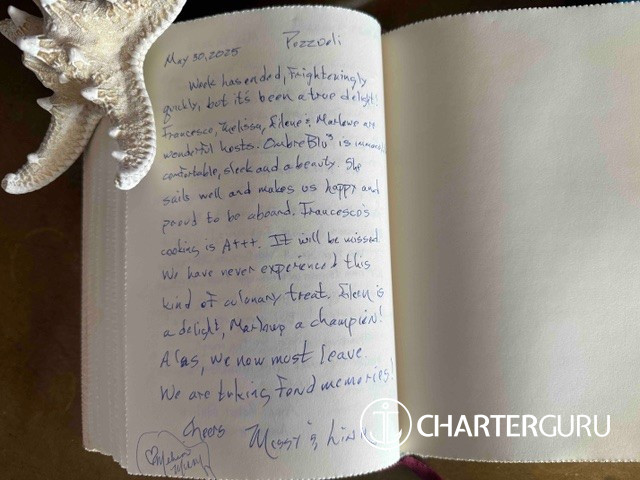 May 30, 2025 Pozzuoli
Week has ended, Frighteningly
quickly, but it's been a true delight!
Francesco, Melissa, Eilene & Marlowe are
wonderful hosts. OmbreBlu³ is
comfortable, sleek and a beauty. She
sails well and makes us happy and
proud to be aboard. Francesco's
cooking is A+++. It will be missed
We have never experienced this
kind of culunary treat. Eileen is
a delight, Marlowe a champion!
Alas, we now must leave.
We are taking fond memories!
Cheers Missy &
CHARTERGURU